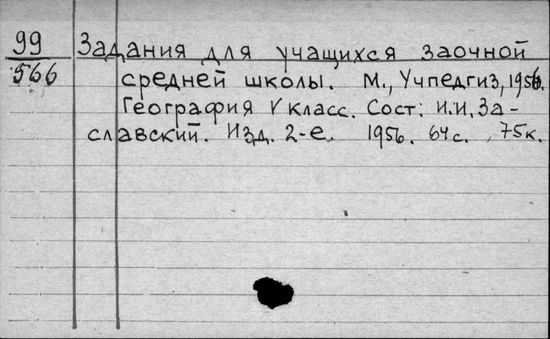 99 Задания для учащихся заочной
566 средней школы. М., Учпедгиз, 1956.
География V класс. Сост: И.И. За-
славский. Изд. 2-е. 1956. 64 с. , 75к.